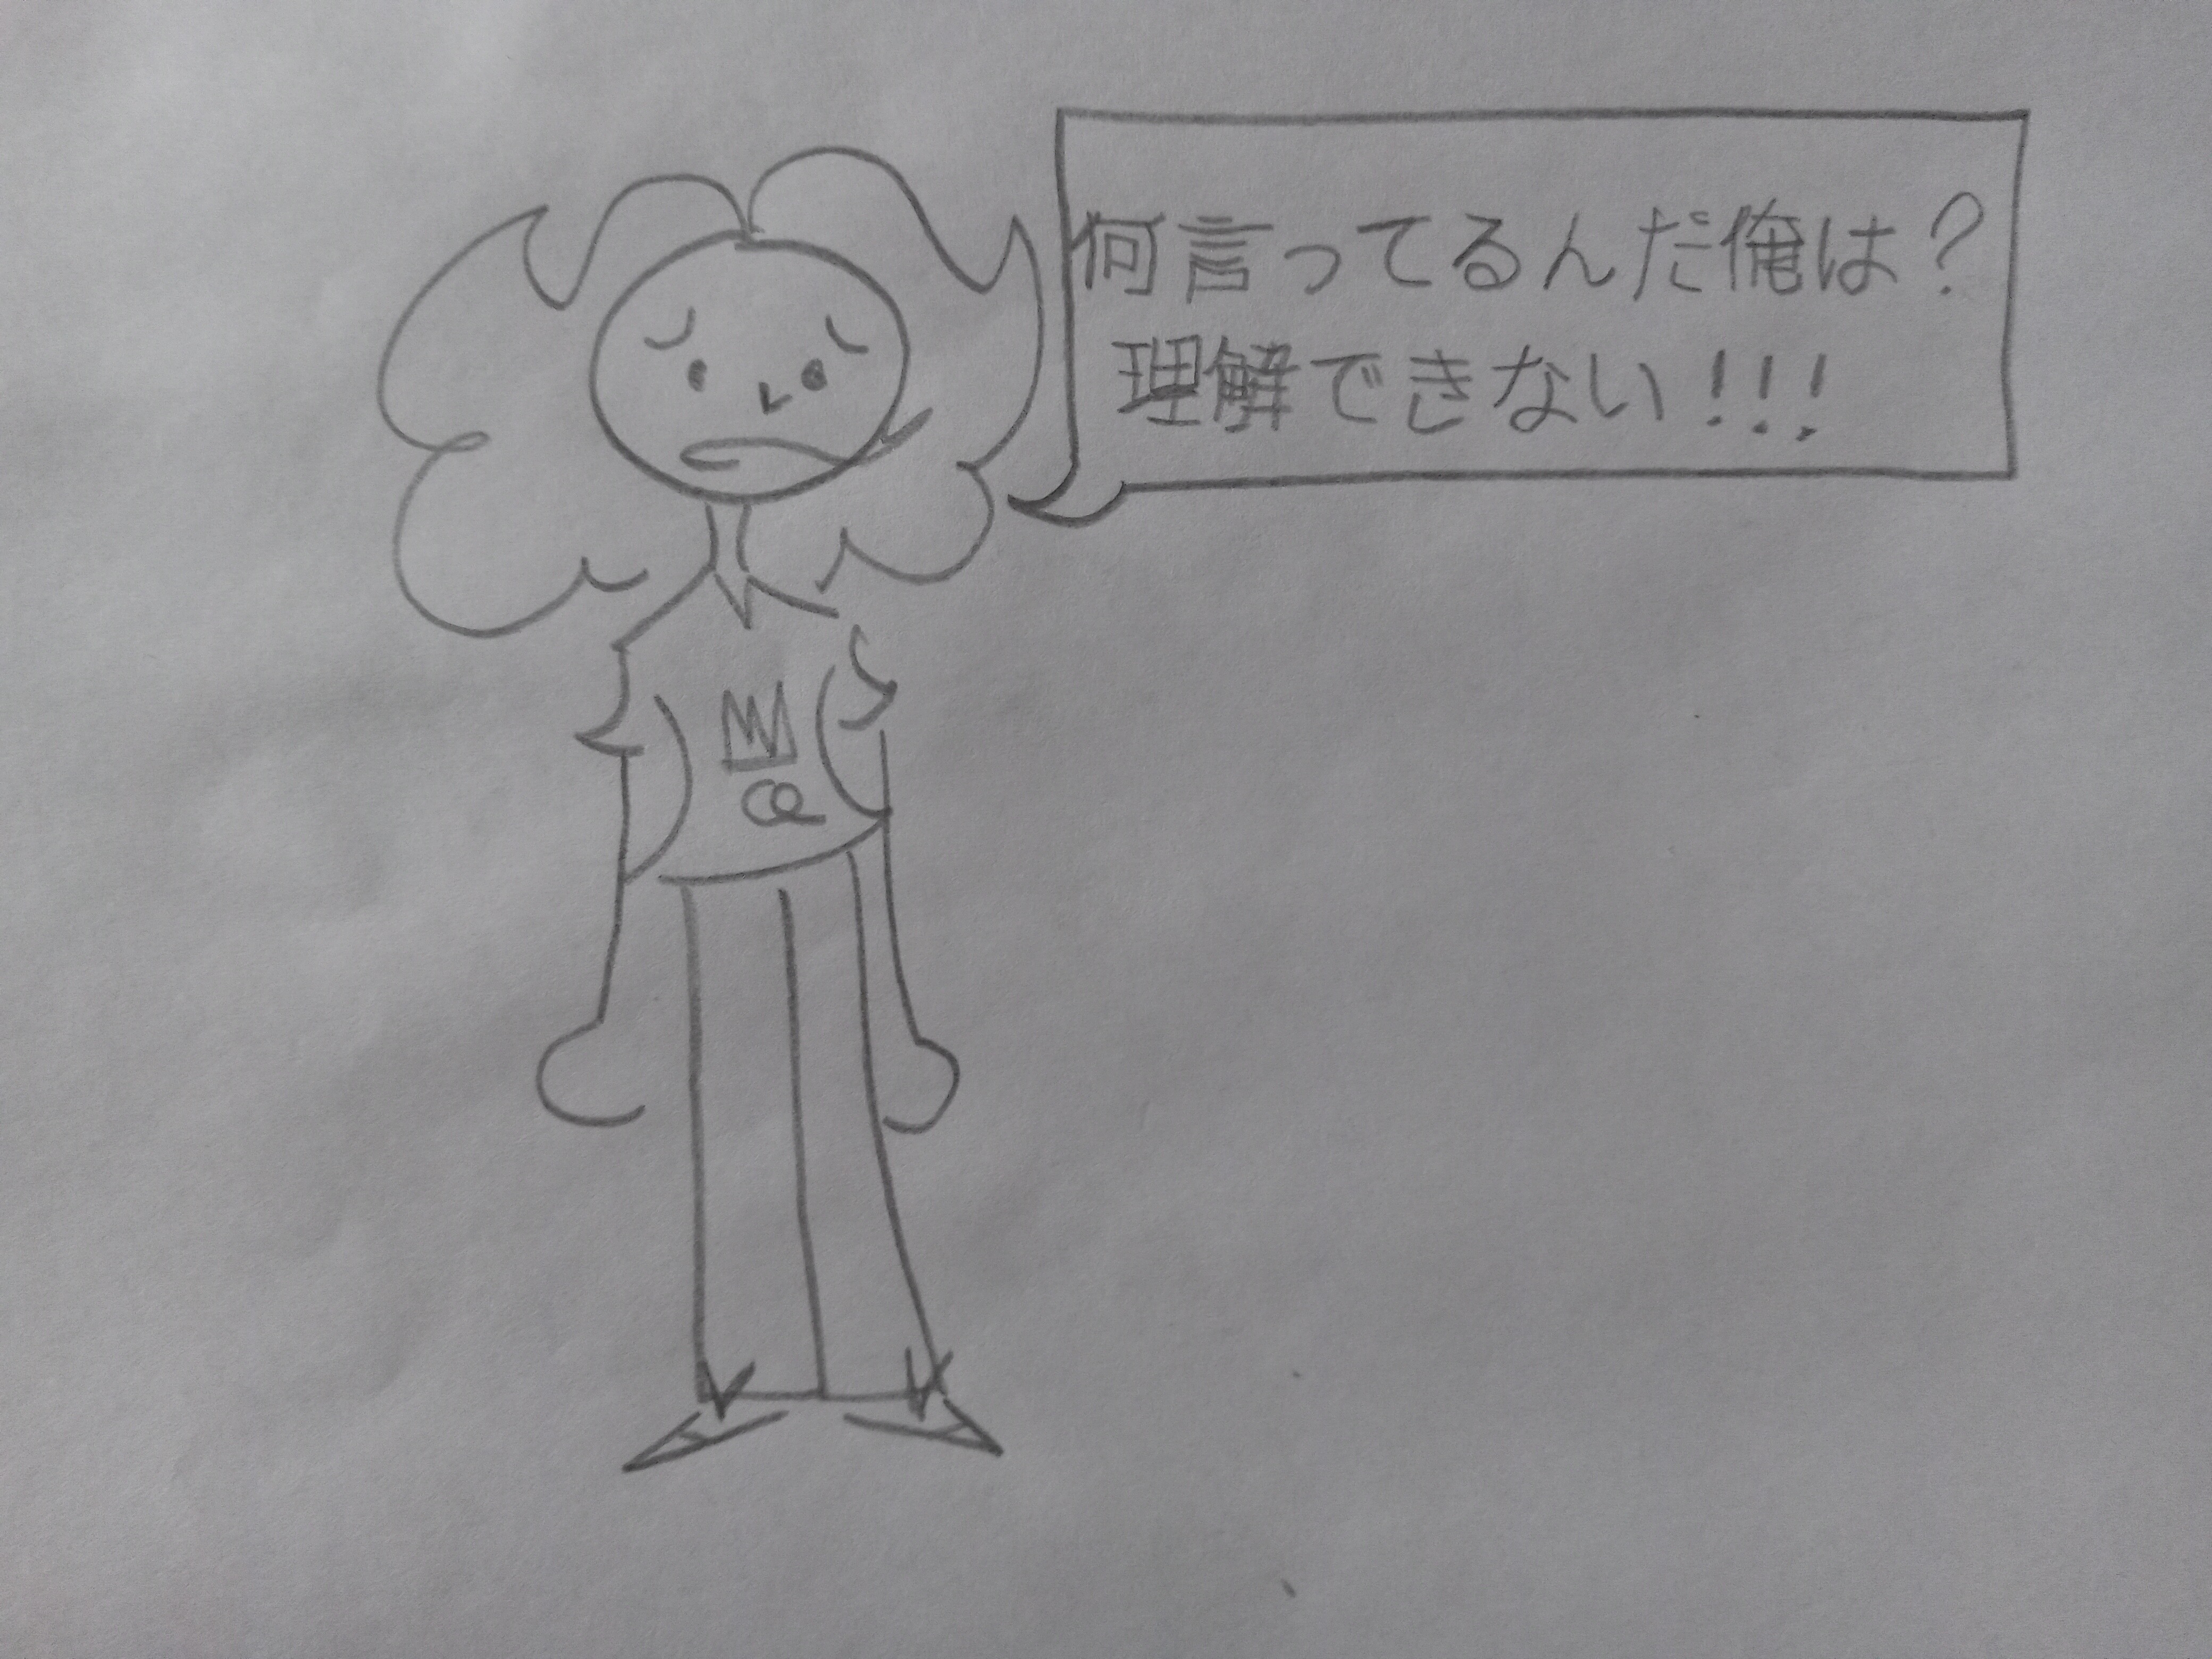 何言ってるんだ俺は?
理解できない!!!